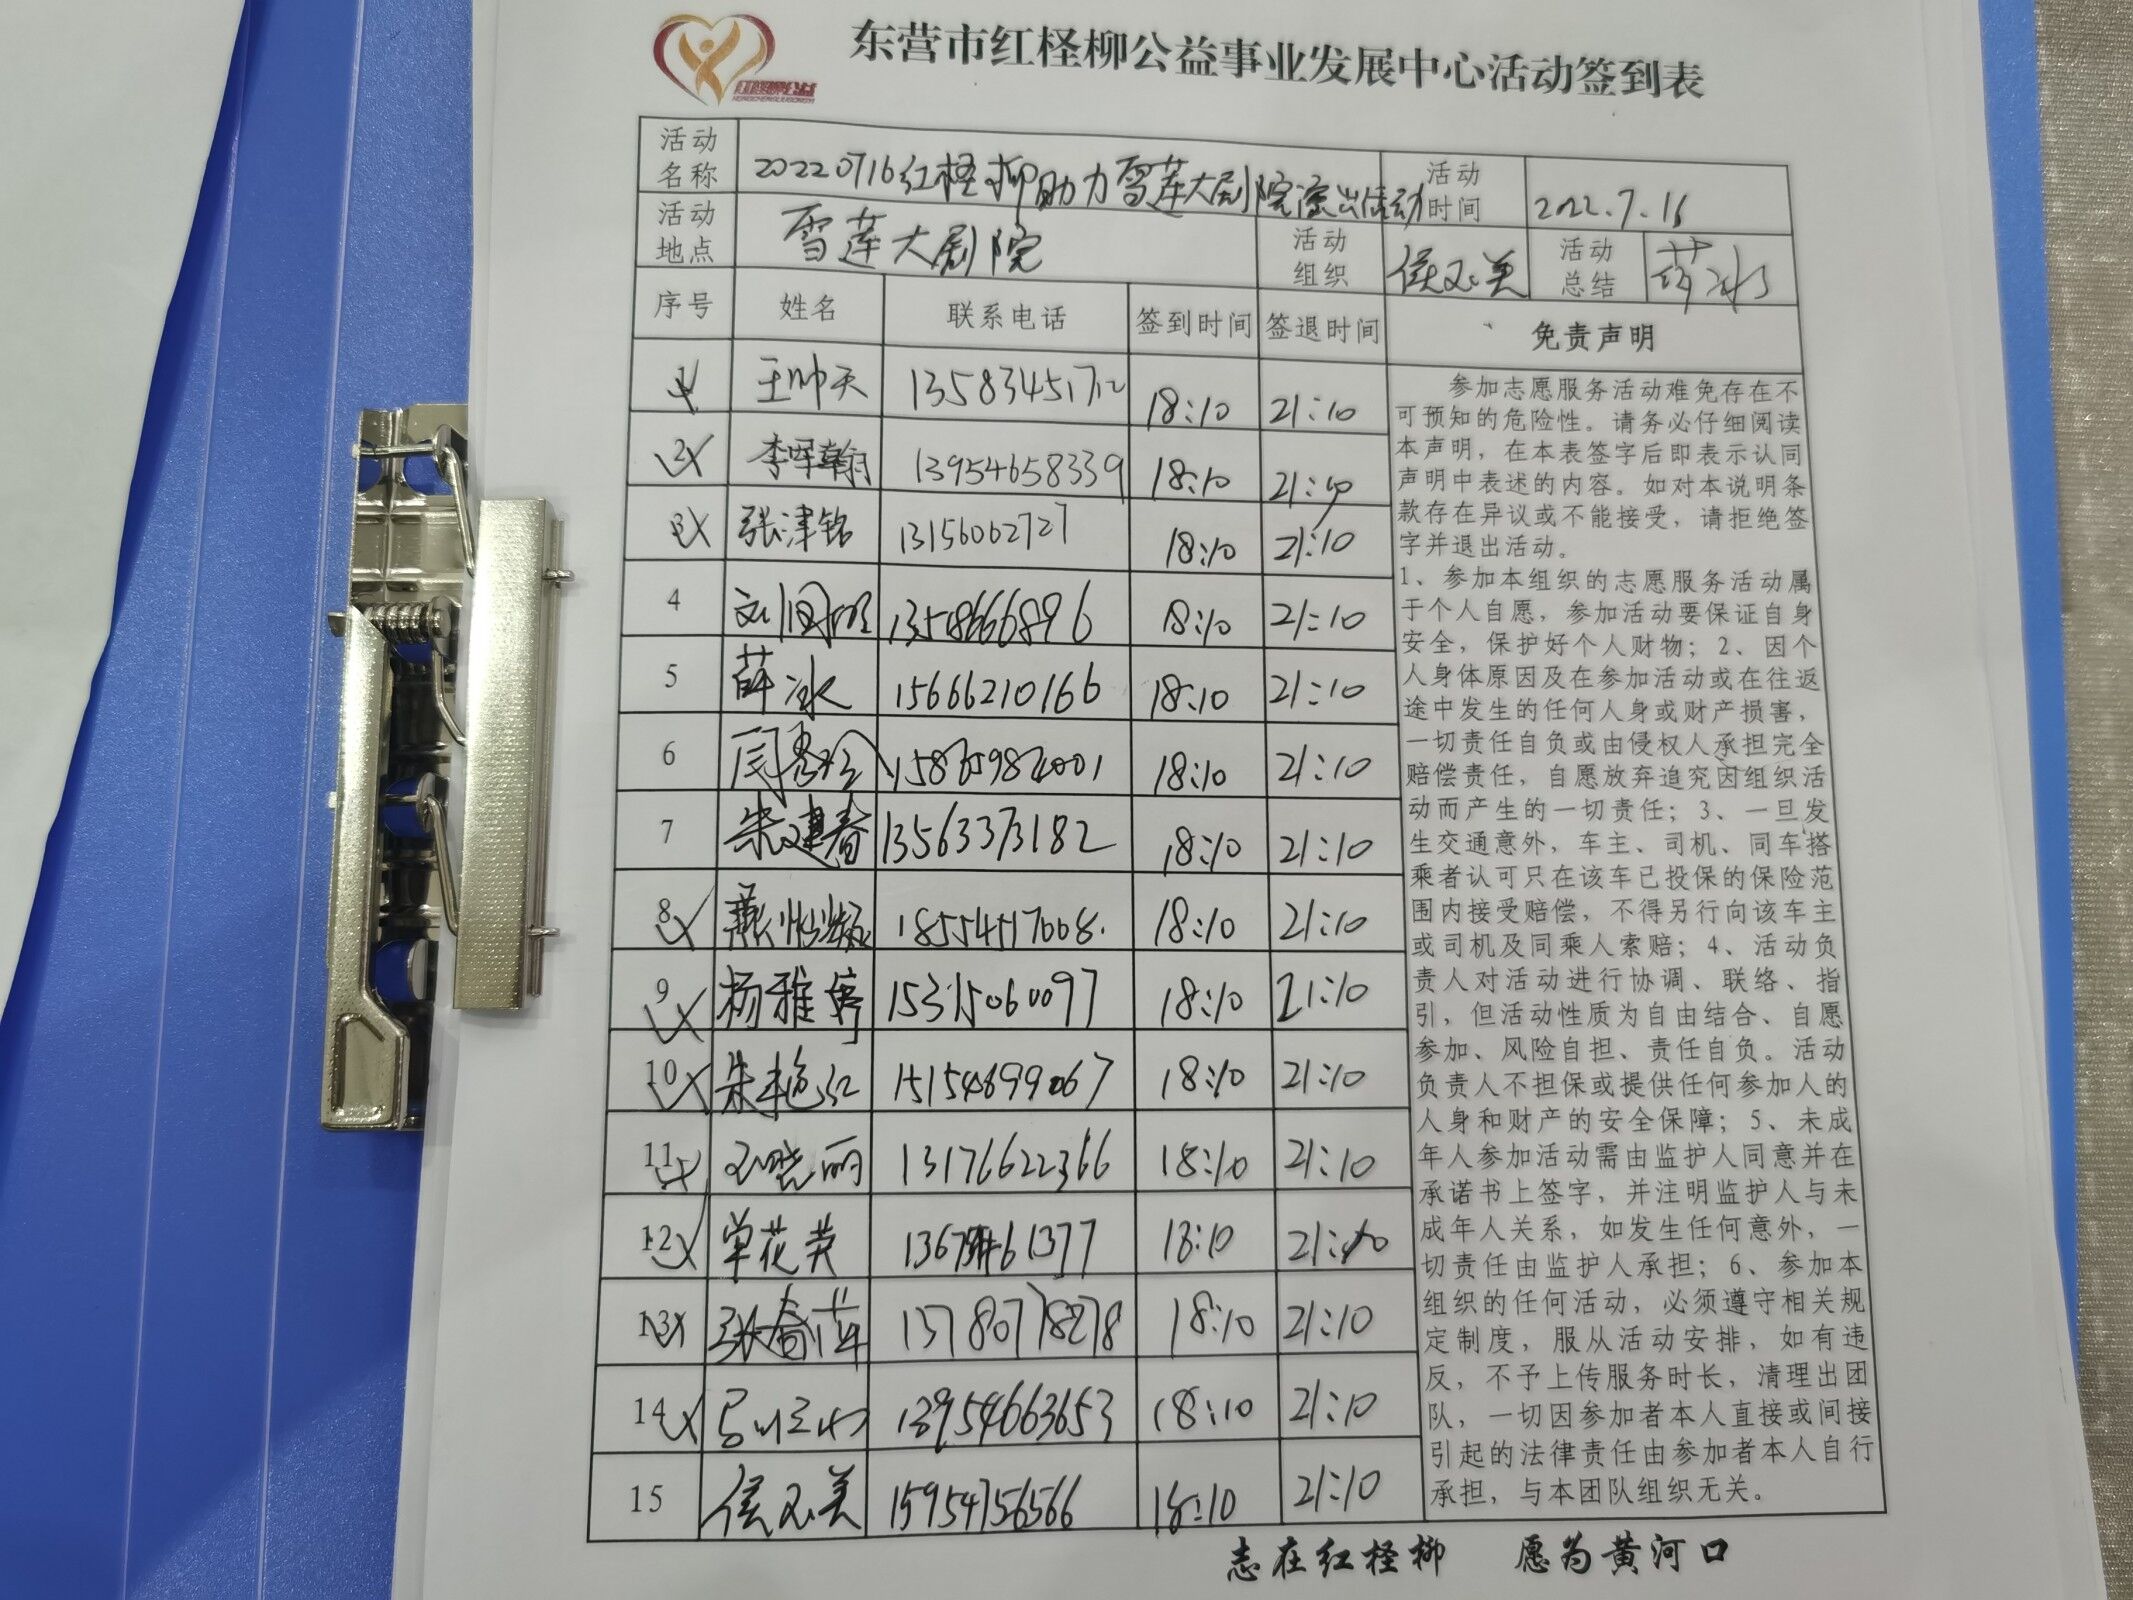 红柽柳公益
东营市红柽柳公益事业发展中心活动签到表
活动名称 20220716红柽柳助力雪莲大剧院演出活动 活动时间 2022.7.16
活动地点 雪莲大剧院 活动组织 侯玉美 活动总结 薛冰
序号 姓名 联系电话 签到时间 签退时间 免责声明
1 王帅天 13583451712 18:10 21:10
2 李晖翰 13954658339 18:10 21:10
3 张津铭 13156062727 18:10 21:10
4 13548666896 18:10 21:10
5 薛冰 15666210166 18:10 21:10
6 闫秀玲 18:10 21:10
7 朱建春 13563373182 18:10 21:10
8 18554517668 18:10 21:10
9 杨雅婷 15315060097 18:10 21:10
10 朱艳红 15154699067 18:10 21:10
11 晓丽 13176622366 18:10 21:10
12 单花英 18:10 21:10
13 张春萍 13780778278 18:10 21:10
14 13954663653 18:10 21:10
15 侯玉美 15954756566 18:10 21:10
参加志愿服务活动难免存在不
可预知的危险性。请务必仔细阅读
本声明，在本表签字后即表示认同
声明中表述的内容。如对本说明条
款存在异议或不能接受，请拒绝签
字并退出活动。
1、参加本组织的志愿服务活动属
于个人自愿，参加活动要保证自身
安全，保护好个人财物；2、因个
人身体原因及在参加活动或在往返
途中发生的任何人身或财产损害，
一切责任自负或由侵权人承担完全
赔偿责任，自愿放弃追究因组织活
动而产生的一切责任；3、一旦发
生交通意外，车主、司机、同车搭
乘者认可只在该车已投保的保险范
围内接受赔偿，不得另行向该车主
或司机及同乘人索赔；4、活动负
责人对活动进行协调、联络、指
引，但活动性质为自由结合、自愿
参加、风险自担、责任自负。活动
负责人不担保或提供任何参加人的
人身和财产的安全保障；5、未成
年人参加活动需由监护人同意并在
承诺书上签字，并注明监护人与未
成年人关系，如发生任何意外，一
切责任由监护人承担；6、参加本
组织的任何活动，必须遵守相关规
定制度，服从活动安排，如有违
反，不予上传服务时长，清理出团
队，一切因参加者本人直接或间接
引起的法律责任由参加者本人自行
承担，与本团队组织无关。
志在红柽柳 愿为黄河口